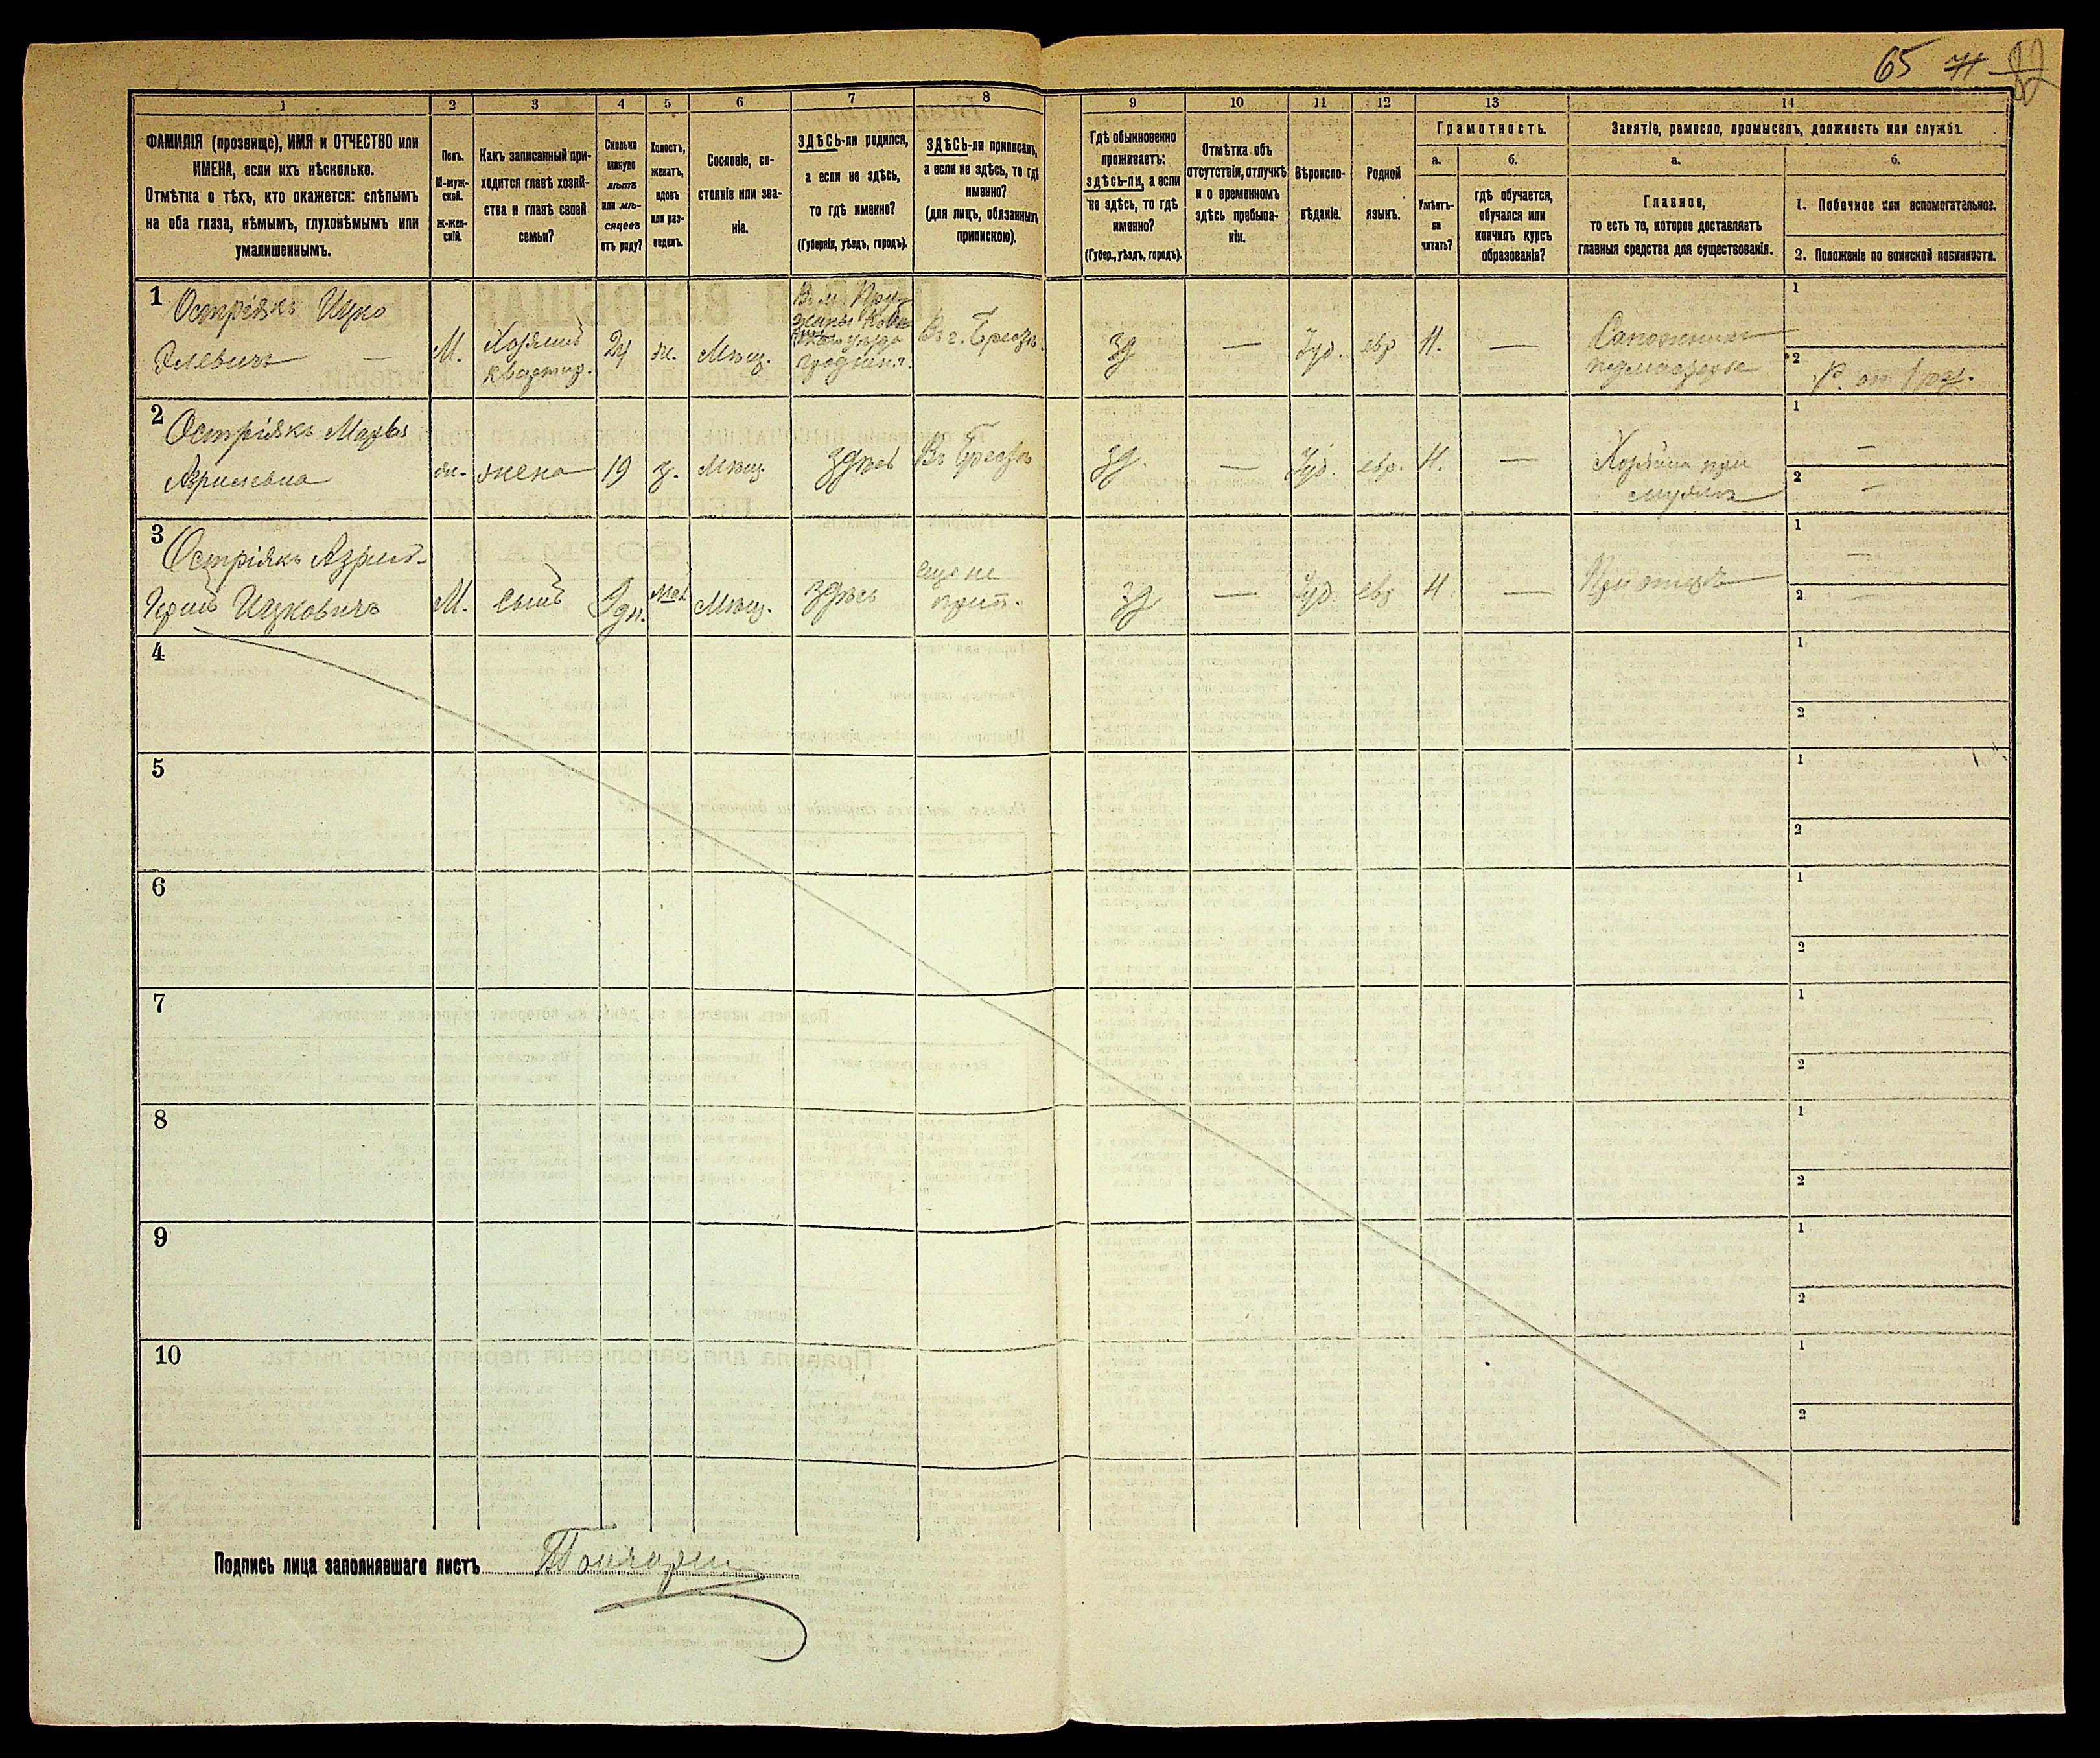 65 71 82
1 2 3 4 5 6 7 8 9 10 11 12 13 14
ФАМИЛІЯ (прозвище), ИМЯ и ОТЧЕСТВО или
ИМЕНА, если ихъ нѣсколько.
Отмѣтка о тѣхъ, кто окажется: слѣпымъ
на оба глаза, нѣмымъ, глухонѣмымъ или
умалишеннымъ.
Полъ.
М-муж-
ской.
ж-жен-
скій.
Какъ записанный при-
ходится главѣ хозяй-
ства и главѣ своей
семьи?
Сколько
минуло
лѣтъ
или мѣ-
сяцевъ
отъ роду?
Холостъ,
женатъ,
вдовъ
или раз-
веденъ.
Сословіе, со-
стояніе или зва-
ніе.
ЗДѢСЬ-ли родился,
а если не здѣсь,
то гдѣ именно?
(Губернія, уѣздъ, городъ).
ЗДѢСЬ-ли приписанъ,
а если не здѣсь, то гдѣ
именно?
(для лицъ, обязанныхъ
припискою).
Гдѣ обыкновенно
проживаетъ:
здѣсь-ли, а если
не здѣсь, то гдѣ
именно?
(Губер., уѣздъ, городъ).
Отмѣтка объ
отсутствіи, отлучкѣ
и о временномъ
здѣсь пребыва-
ніи.
Вѣроиспо-
вѣданіе.
Родной
языкъ.
Грамотность.
а.
Умѣетъ-
ли
читать?
б.
гдѣ обучается,
обучался или
кончилъ курсъ
образованія?
Занятіе, ремесло, промыселъ, должность или служба.
а.
Главное,
то есть то, которое доставляетъ
главныя средства для существованія.
б.
1. Побочное или вспомогательное.
2. Положеніе по воинской повинности.
1 Острiякъ Ицко
Элевичъ —
М.
Хозяинъ
квартир.
24
ж.
Мѣщ.
Въ м. Пру-
жаны Коб
уѣзда
Гродн.
Въ г. Брестѣ.
зд
—
Іуд.
евр
Н.
—
Сапожникъ
подмастерье
1
2
2 Острiякъ
Азрилевна
жн.
жена
19
з.
Мѣщ.
здѣсь
Въ Брестѣ
зд.
—
Іуд.
евр.
Н.
—
при
мужѣ
1 —
2 —
3 Острiякъ Азриль-
Ицковичъ
М.
сынъ
дн.
Мѣщ.
здѣсь
еще не
прип.
зд
—
Іуд.
евр
Н
—
При отцѣ
1 —
2 —
4
1
2
5
1
2
6
1
2
7
1
2
8
1
2
9
1
2
10
1
2
Подпись лица заполнявшаго листъ